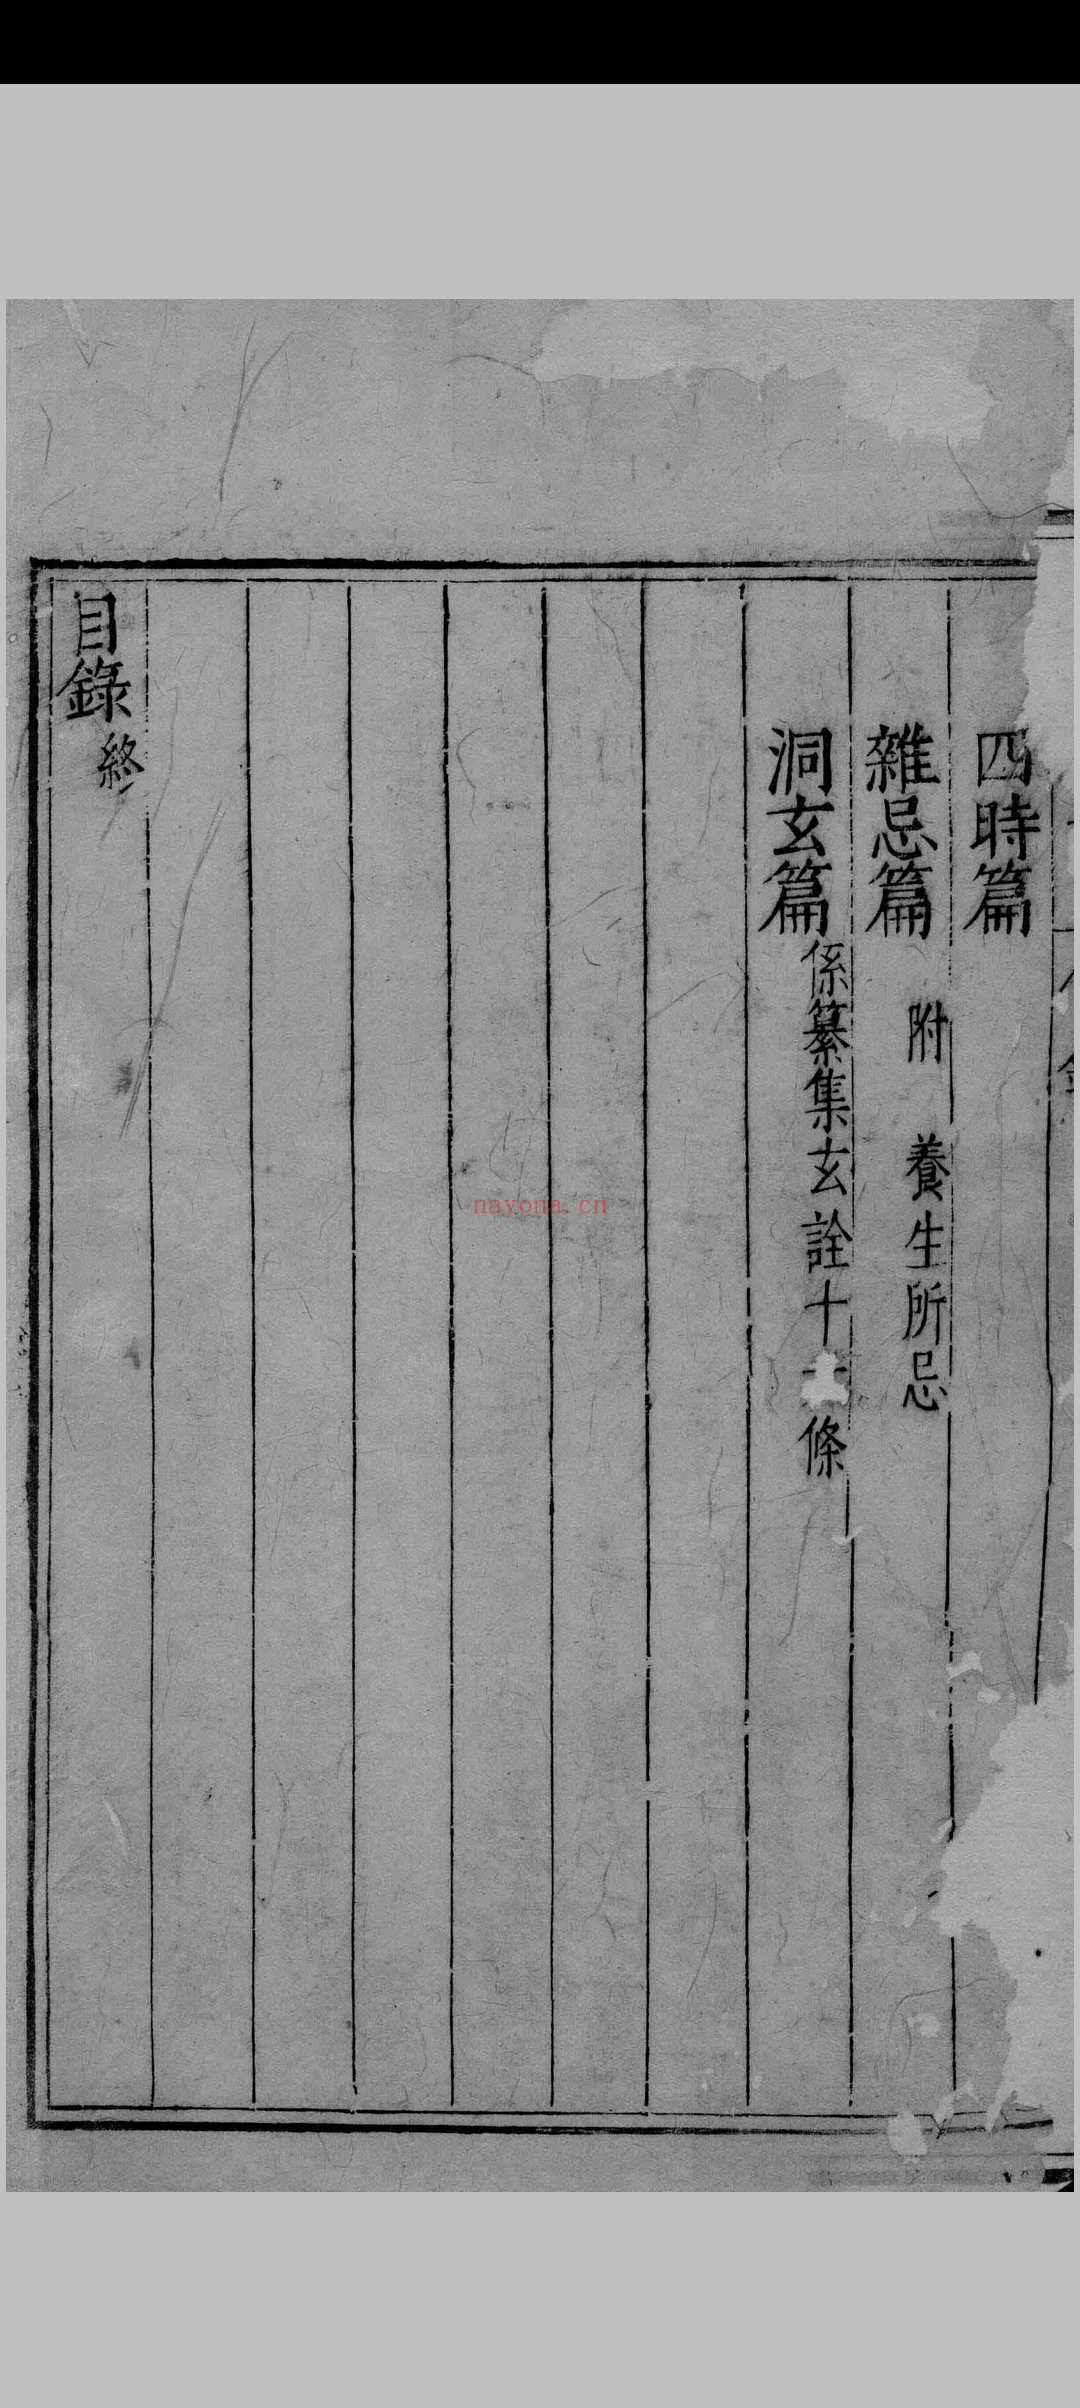 四時篇
雜忌篇 附 養生所忌
洞玄篇 係纂集玄詮十 條
目錄 終
nayona.cn